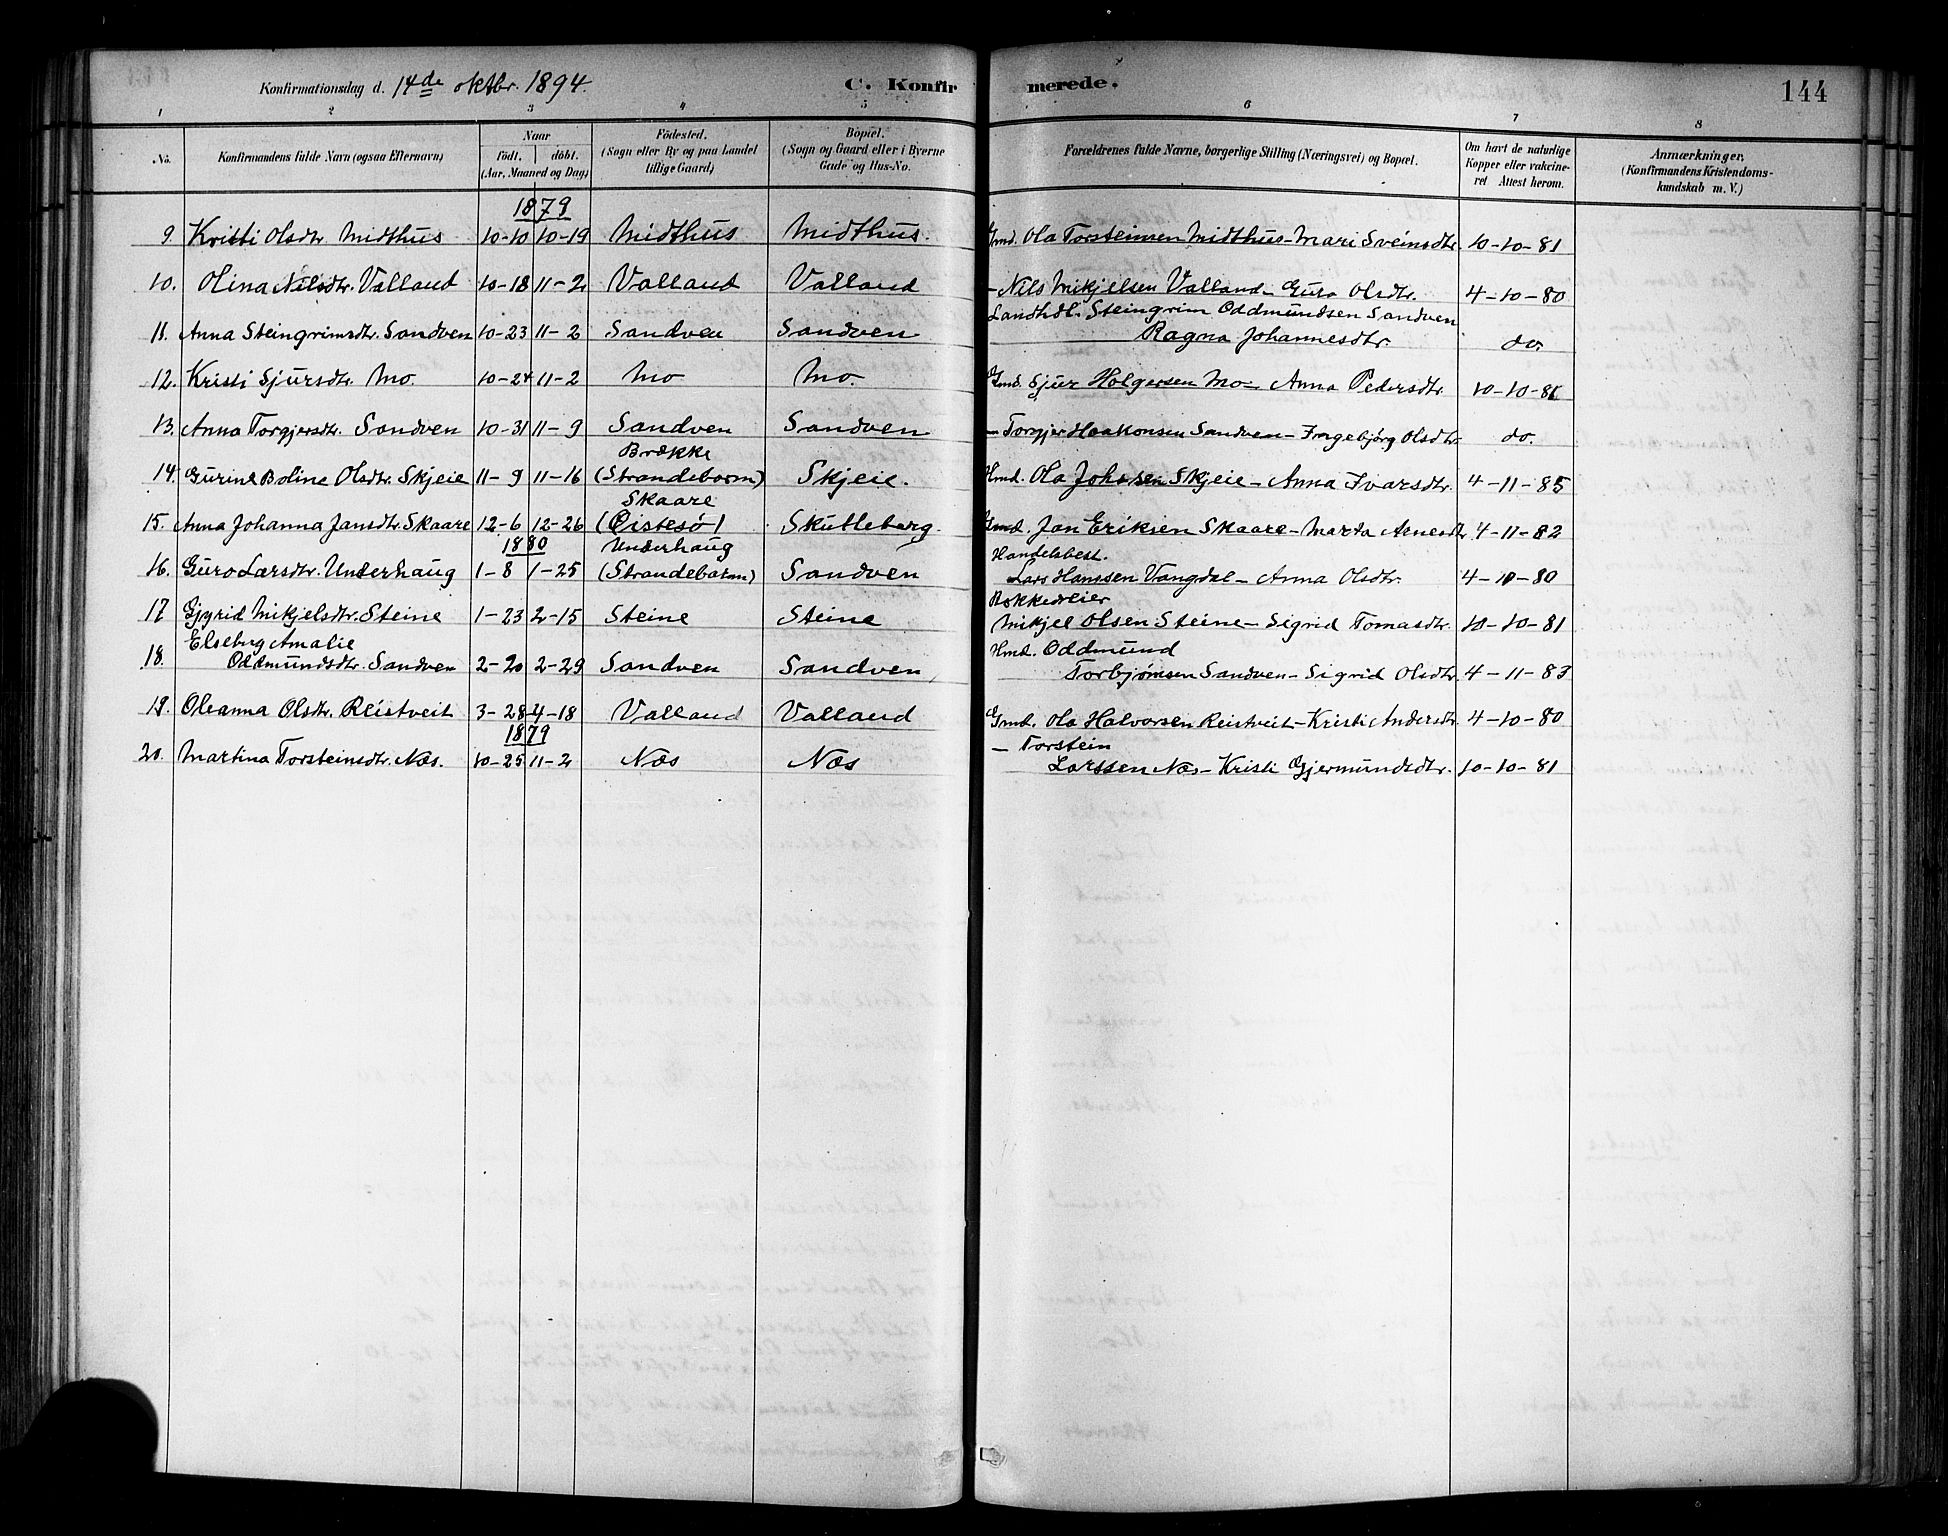 Konfirmationsdag d. 14de oktbr. 1894. C. Konfirmerede. 144
1 2 3 4 5 6 7 8
No. Konfirmandens fulde Navn (ogsaa Efternavn) Naar født. døbt. (Aar, Maaned og Dag) Fødested. (Sogn eller By og paa Landet tillige Gaard) Bopæl. (Sogn og Gaard eller i Byerne Gade og Hus-No. Forældrenes fulde Navne, borgerlige Stilling (Næringsvei) og Bopæl. Om havt de naturlige Kopper eller vakcineret Attest herom. Anmærkninger. (Konfirmandens Kristendomskundskab m. V.)
1879
9. Kristi Olsdtr. Midthus 10-10 10-19 Midthus Midthus. Gmd. Ola Torsteinsen Midthus - Mari Sveinsdtr. 10-10-81
10. Olina Nilsdtr. Valland 10-18 11-2 Valland Valland - Nils Mikjelsen Valland - Guro Olsdtr. 4-10-80
11. Anna Steingrimsdtr. Sandven 10-23 11-2 Sandven Sandven Landhdl. Steingrim Oddmundsen Sandven
Ragna Johannesdtr. do.
12. Kristi Sjursdtr. Mo. 10-24 11-2 Mo Mo. Gmd. Sjur Holgersen Mo - Anna Pedersdtr. 10-10-81
13. Anna Torgjersdtr. Sandven 10-31 11-9 Sandven Sandven - Torgjer Haakonsen Sandven - Ingebjørg Olsdtr. do.
Brække
14. Gurine Boline Olsdtr. Skjeie 11-9 11-16 (Strandebarm) Skjeie. Hmd. Ola Johnsen Skjeie - Anna Ivarsdtr. 4-11-85
Skaare
15. Anna Johanna Jansdtr. Skaare 12-6 12-26 (Østesø) Skutleberg. Gmd. Jan Eriksen Skaare - Marta Arnesdtr 4-11-82
1880 Underhaug Handelsbest.
16. Guro Larsdtr. Underhaug 1-8 1-25 (Strandebarm) Sandven Lars Hanssen Vangdal - Anna Olsdtr. 4-10-80
17 Gjyrid Mikjelsdtr. Steine 1-23 2-15 Steine Steine Mikjel Olsen Steine - Sigrid Tomasdtr. 10-10-81
Elseberg Amalie Hmd. Oddmund
18. Oddmundsdtr. Sandven 2-20 2-29 Sandven Sandven Torbjørnsen Sandven - Sigrid Olsdtr. 4-11-83
19. Oleanna Olsdtr. Reistveit 3-28 4-18 Valland Valland Gmd. Ola Halvorsen Reistveit - Kristi Andersdtr. 4-10-80
1879 - Torstein
20. Martina Torsteinsdtr. Næs. 10-25 11-2 Næs Næs Larssen Næs - Kristi Gjermundsdtr. 10-10-81